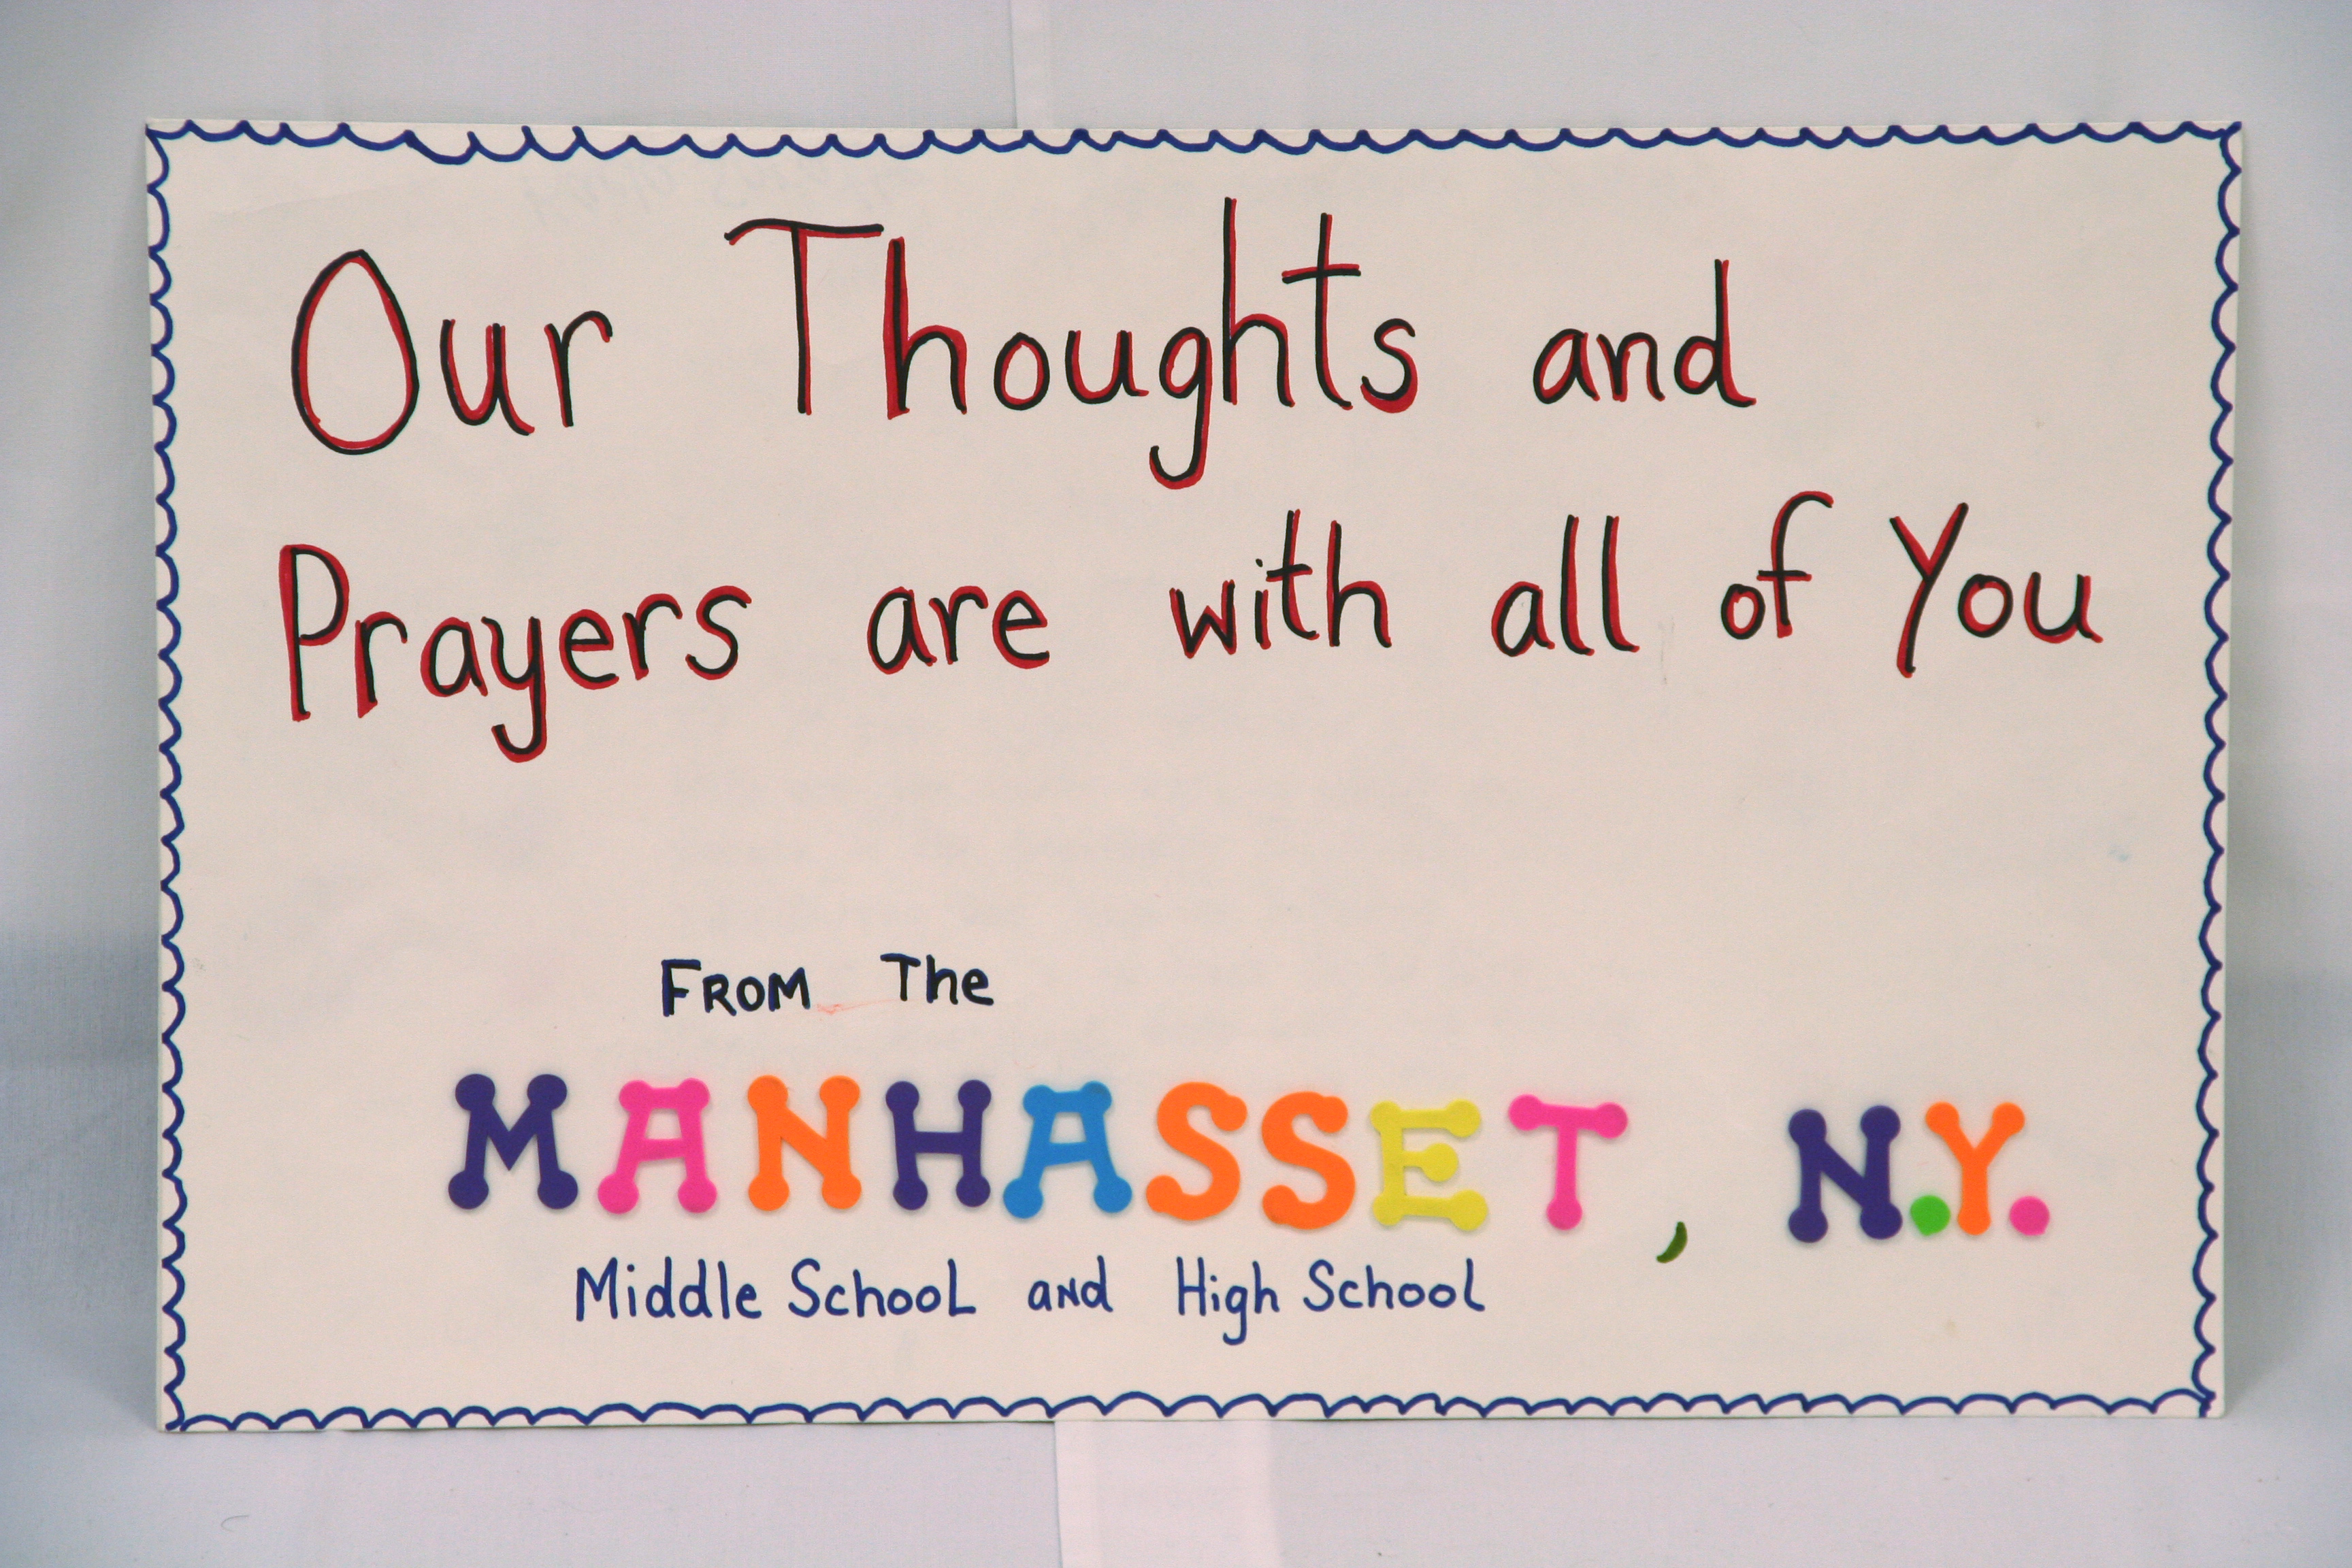 Our Thoughts and
Prayers are with all of You
FROM The
MANHASSET, N.Y.
Middle School and High School